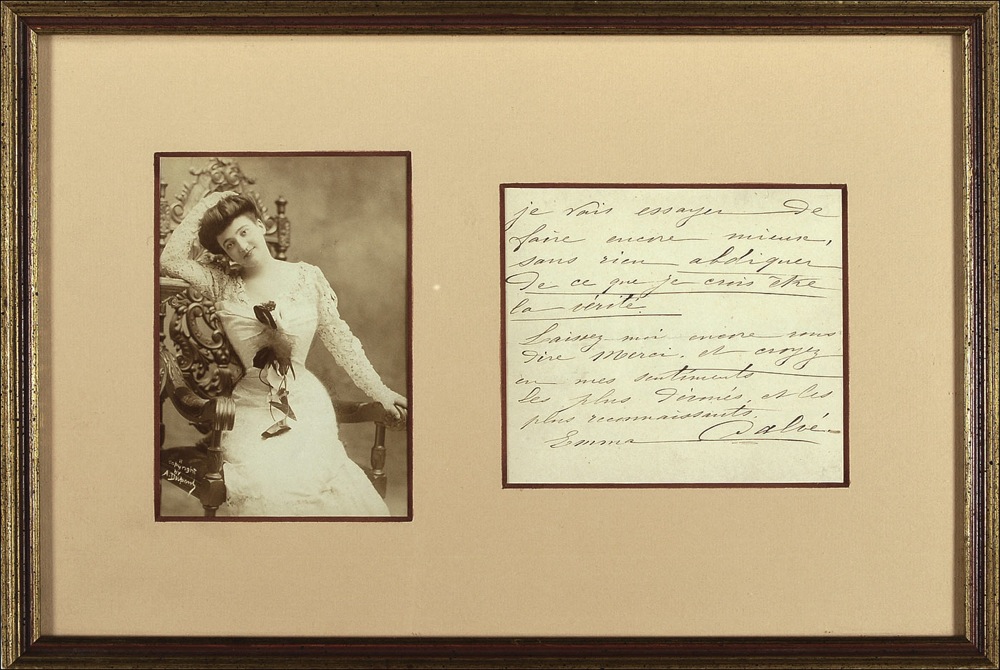 copyright
by
A. Dupont
je vais essayer de
faire encore mieux,
sans rien abdiquer
de ce que je crois être
la vérité.
Laissez moi encore vous
dire Merci. et croyez
en mes sentiments
les plus dévoués, et les
plus reconnaissants.
Emma Calvé